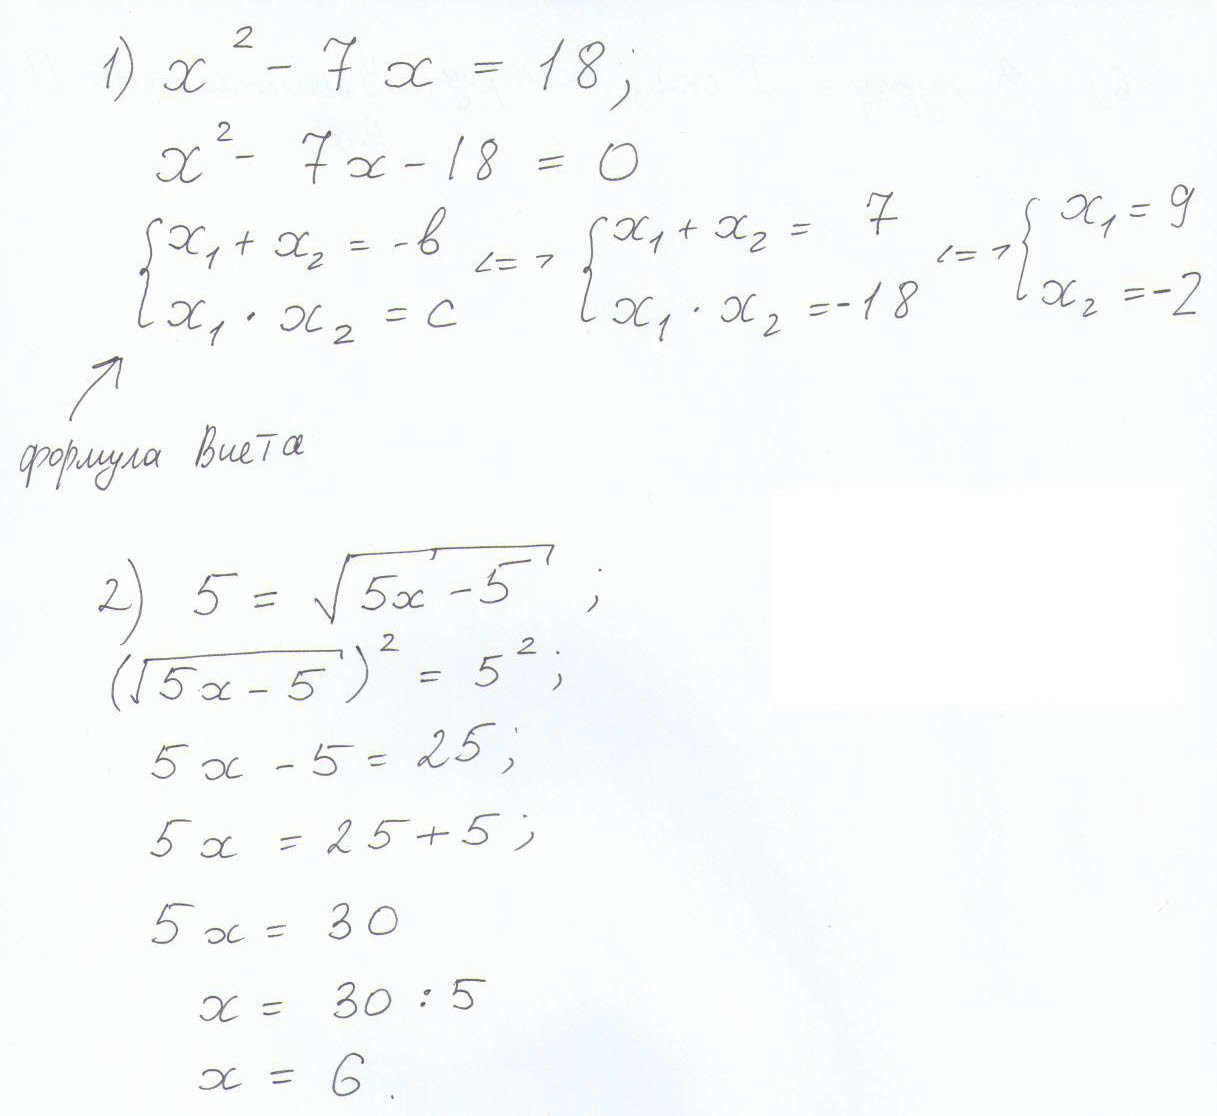 1) x² - 7x = 18;
x² - 7x - 18 = 0
{ x₁ + x₂ = -b <=> { x₁ + x₂ = 7 <=> { x₁ = 9
x₁ · x₂ = c x₁ · x₂ = -18 x₂ = -2
формула Виета
2) 5 = √(5x - 5) ;
(√(5x - 5))² = 5² ;
5x - 5 = 25;
5x = 25 + 5;
5x = 30
x = 30 : 5
x = 6.